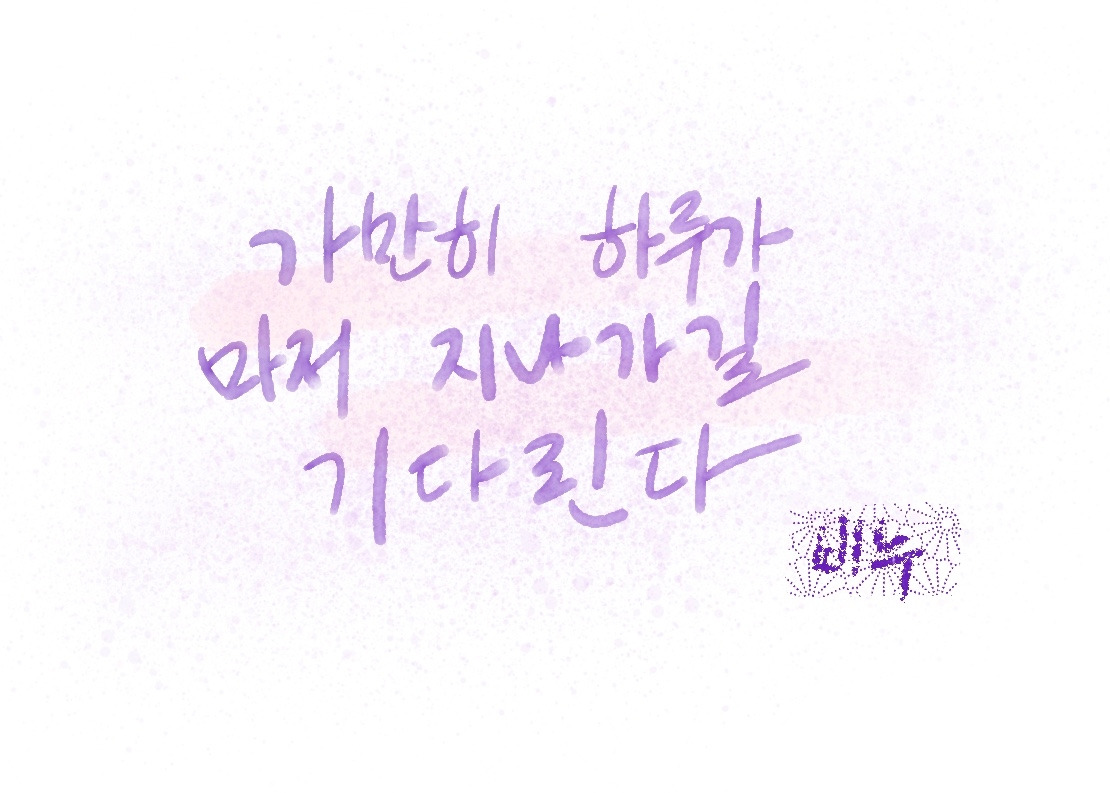 가만히 하루가
마저 지나가길
기다린다
비누